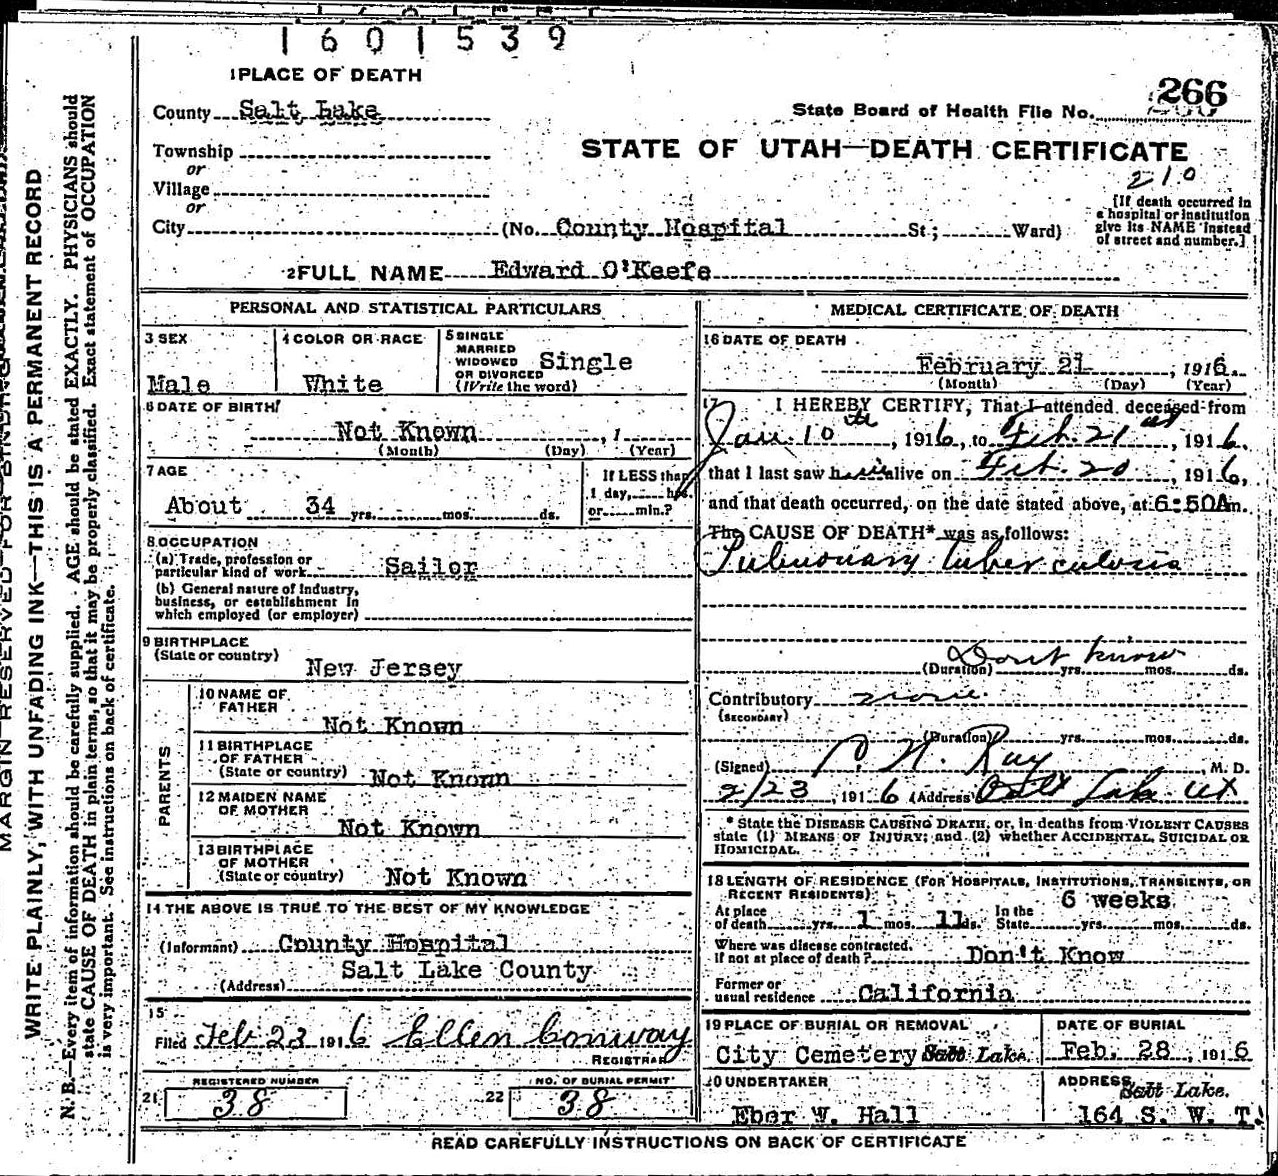 1601539
1 PLACE OF DEATH
County Salt Lake
State Board of Health File No. 266
Township
or
Village
or
City (No. County Hospital St; Ward)
STATE OF UTAH—DEATH CERTIFICATE
210
[If death occurred in
a hospital or institution
give its NAME instead
of street and number.]
2 FULL NAME Edward O'Keefe
PERSONAL AND STATISTICAL PARTICULARS
3 SEX
Male
4 COLOR OR RACE
White
5 SINGLE
MARRIED
WIDOWED
OR DIVORCED
(Write the word)
Single
6 DATE OF BIRTH
Not Known , 1
(Month) (Day) (Year)
7 AGE
About 34 yrs. mos. ds.
If LESS than
1 day, hrs.
or min.?
8 OCCUPATION
(a) Trade, profession or
particular kind of work Sailor
(b) General nature of Industry,
business, or establishment in
which employed (or employer)
9 BIRTHPLACE
(State or country)
New Jersey
PARENTS
10 NAME OF
FATHER
Not Known
11 BIRTHPLACE
OF FATHER
(State or country) Not Known
12 MAIDEN NAME
OF MOTHER
Not Known
13 BIRTHPLACE
OF MOTHER
(State or country) Not Known
14 THE ABOVE IS TRUE TO THE BEST OF MY KNOWLEDGE
(Informant) County Hospital
Salt Lake County
(Address)
15
Filed Feb 23 1916 Ellen Conway
REGISTRAR
REGISTERED NUMBER
21 38
NO. OF BURIAL PERMIT
22 38
MEDICAL CERTIFICATE OF DEATH
16 DATE OF DEATH
February 21 , 1916.
(Month) (Day) (Year)
17 I HEREBY CERTIFY, That I attended deceased from
Jan. 10th , 1916, to Feb. 21st , 1916.
that I last saw him alive on Feb. 20 , 1916,
and that death occurred, on the date stated above, at 6:50A m.
The CAUSE OF DEATH* was as follows:
Pulmonary tuberculosis
Dont know
(Duration) yrs. mos. ds.
Contributory none.
(SECONDARY)
(Duration) yrs. mos. ds.
(Signed) N. Ray , M. D.
2/23 , 1916 (Address) Salt Lake
* State the DISEASE CAUSING DEATH, or, in deaths from VIOLENT CAUSES
state (1) MEANS OF INJURY; and (2) whether ACCIDENTAL, SUICIDAL OR
HOMICIDAL.
18 LENGTH OF RESIDENCE (FOR HOSPITALS, INSTITUTIONS, TRANSIENTS, OR
RECENT RESIDENTS)
6 weeks
At place
of death yrs. 1 mos. 11 ds.
In the
State yrs. mos. ds.
Where was disease contracted.
If not at place of death? Don't Know
Former or
usual residence California
19 PLACE OF BURIAL OR REMOVAL
City Cemetery Salt Lake.
DATE OF BURIAL
Feb. 28 , 1916
20 UNDERTAKER
Eber W. Hall
ADDRESS
Salt Lake.
164 S. W. T.
READ CAREFULLY INSTRUCTIONS ON BACK OF CERTIFICATE
MARGIN RESERVED FOR BINDING
WRITE PLAINLY, WITH UNFADING INK—THIS IS A PERMANENT RECORD
N. B.—Every item of information should be carefully supplied. AGE should be stated EXACTLY. PHYSICIANS should
state CAUSE OF DEATH in plain terms, so that it may be properly classified. Exact statement of OCCUPATION
is very important. See instructions on back of certificate.